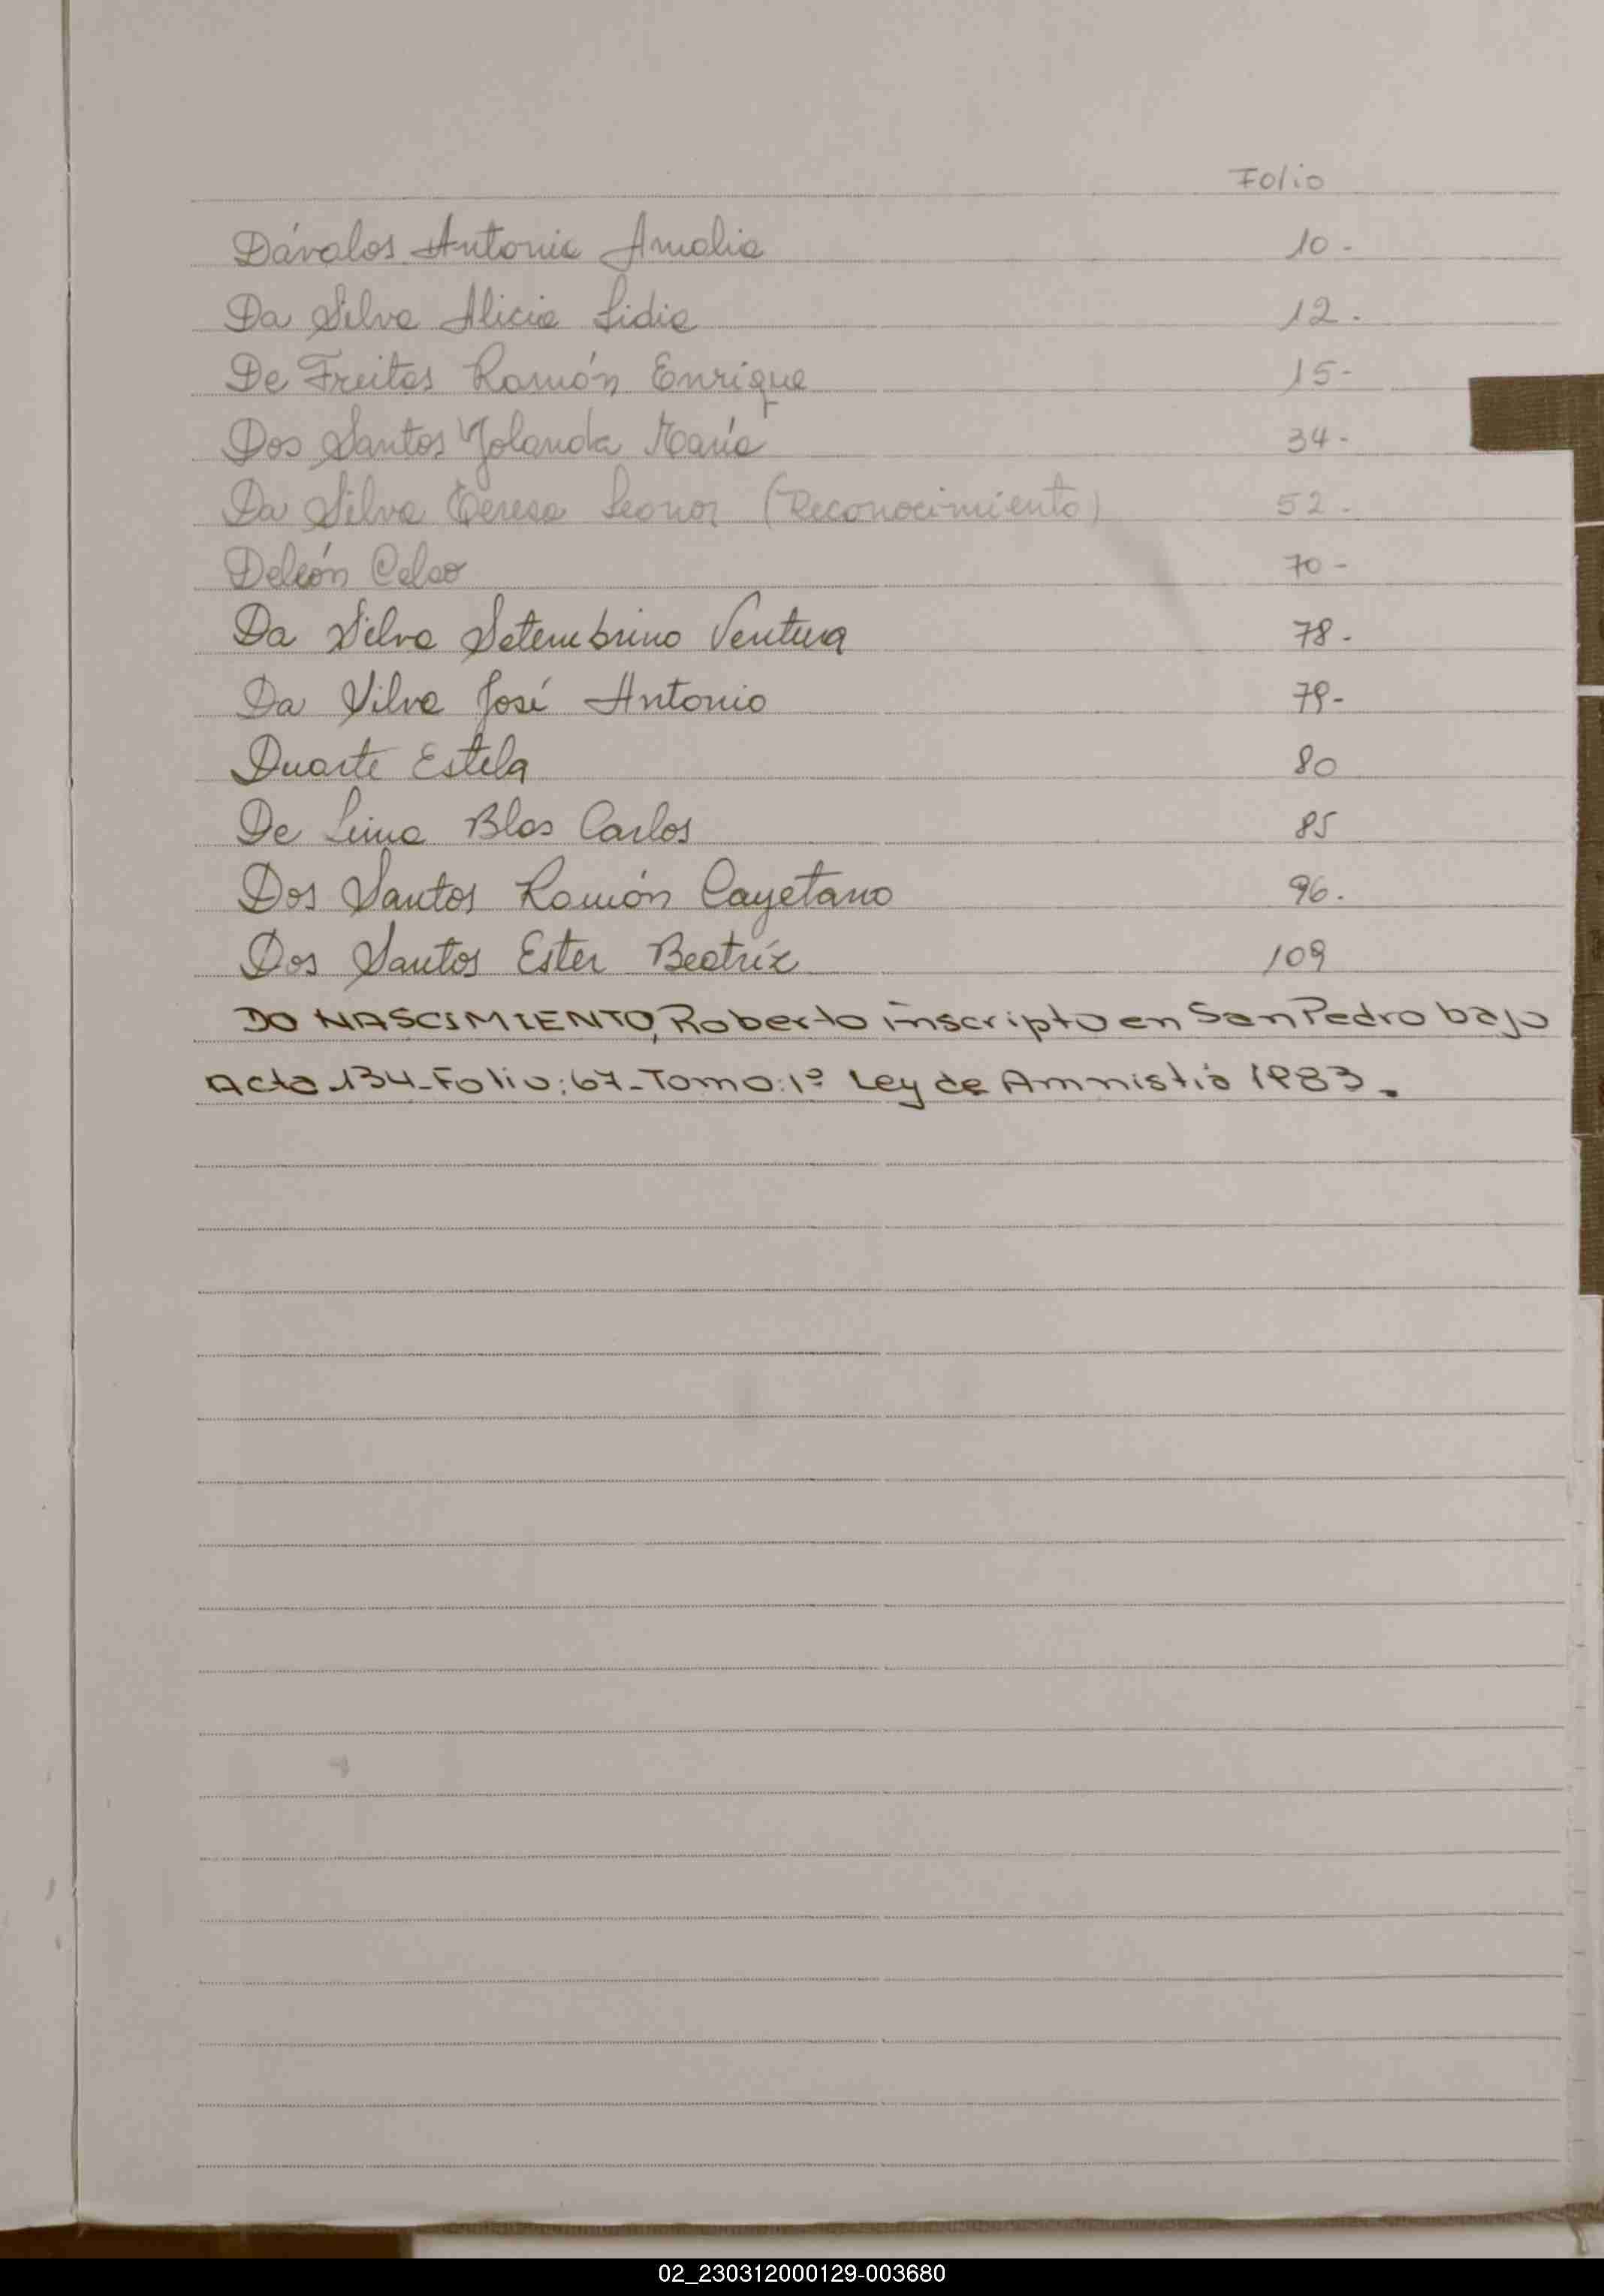 Folio
Dávalos Antonia Amalia 10-
Da Silva Alicia Lidia 12.
De Freitas Ramón Enrique 15-
Dos Santos Yolanda María 34-
Da Silva Teresa Leonor (Reconocimiento) 52.
Deleón Celso 70-
Da Silva Setembrino Ventura 78-
Da Silva José Antonio 79-
Duarte Estela 80
De Lima Blas Carlos 85
Dos Santos Ramón Cayetano 96.
Dos Santos Ester Beatríz 109
DO NASCIMIENTO, Roberto inscripto en San Pedro bajo
Acta 134-Folio:67-Tomo:1º Ley de Amnistia 1983.
02_230312000129-003680